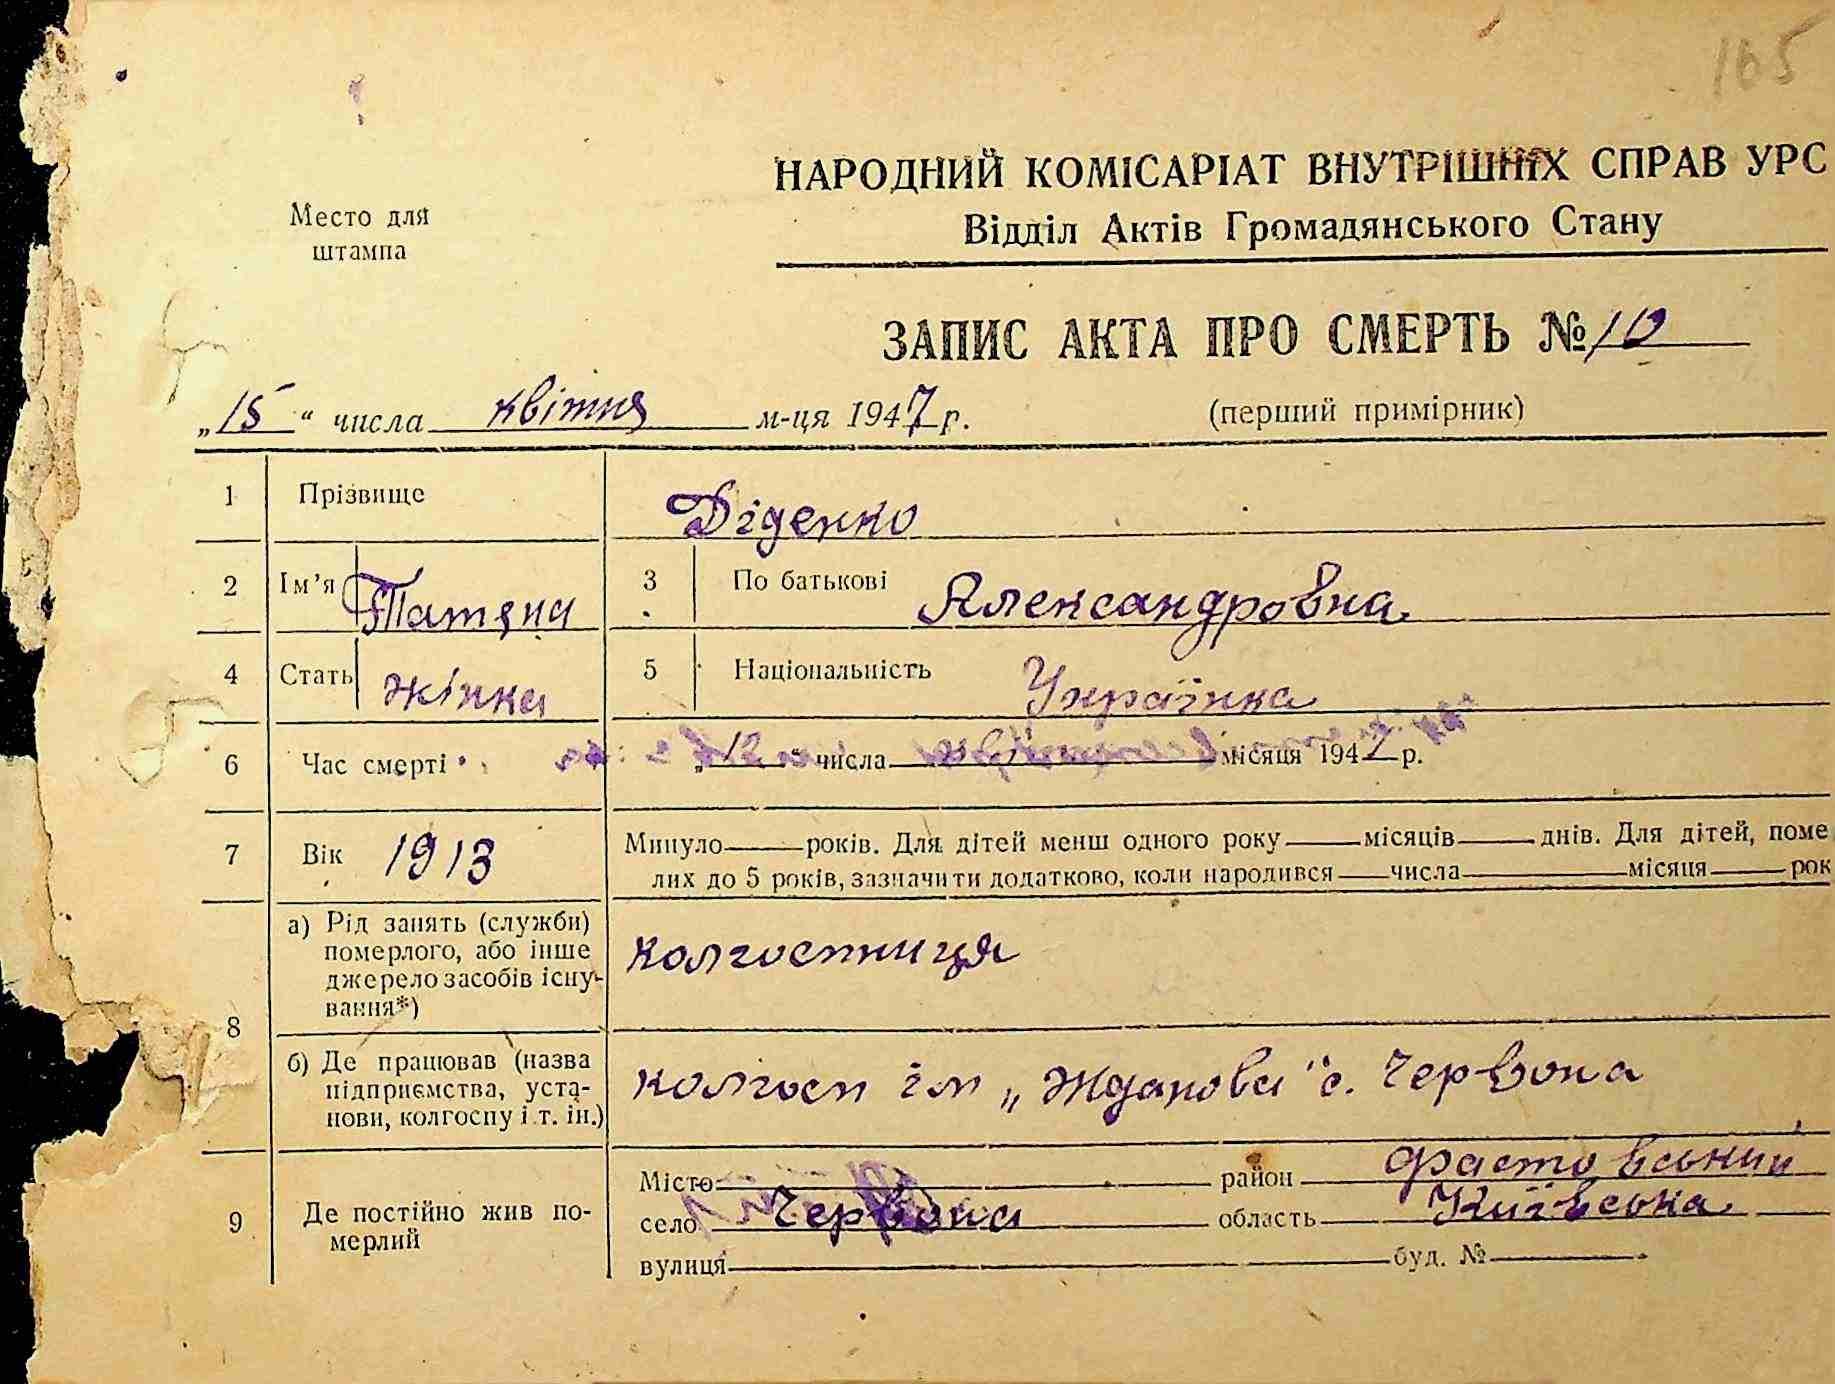 165
НАРОДНИЙ КОМІСАРІАТ ВНУТРІШНІХ СПРАВ УРС
Место для
штампа
Відділ Актів Громадянського Стану
ЗАПИС АКТА ПРО СМЕРТЬ № 10
„15“ числа квітня м-ця 1947 р.
(перший примірник)
1 Прізвище Діденко
2 Ім’я Татяна 3 По батькові Александровна
4 Стать жінка 5 Національність Українка
6 Час смерті „12“ числа квітня місяця 1947 р.
7 Вік 1913 Минуло років. Для дітей менш одного року місяців днів. Для дітей, поме
лих до 5 років, зазначити додатково, коли народився числа місяця рок
8 а) Рід занять (служби)
померлого, або інше
джерело засобів існу-
вання*)
колгостниця
б) Де працював (назва
підприємства, уста-
нови, колгоспу і т. ін.)
колгосп ім „Жданова" с. Червона
9 Де постійно жив по-
мерлий
Місто район Фастовський
село Червона область Київська
вулиця буд. №